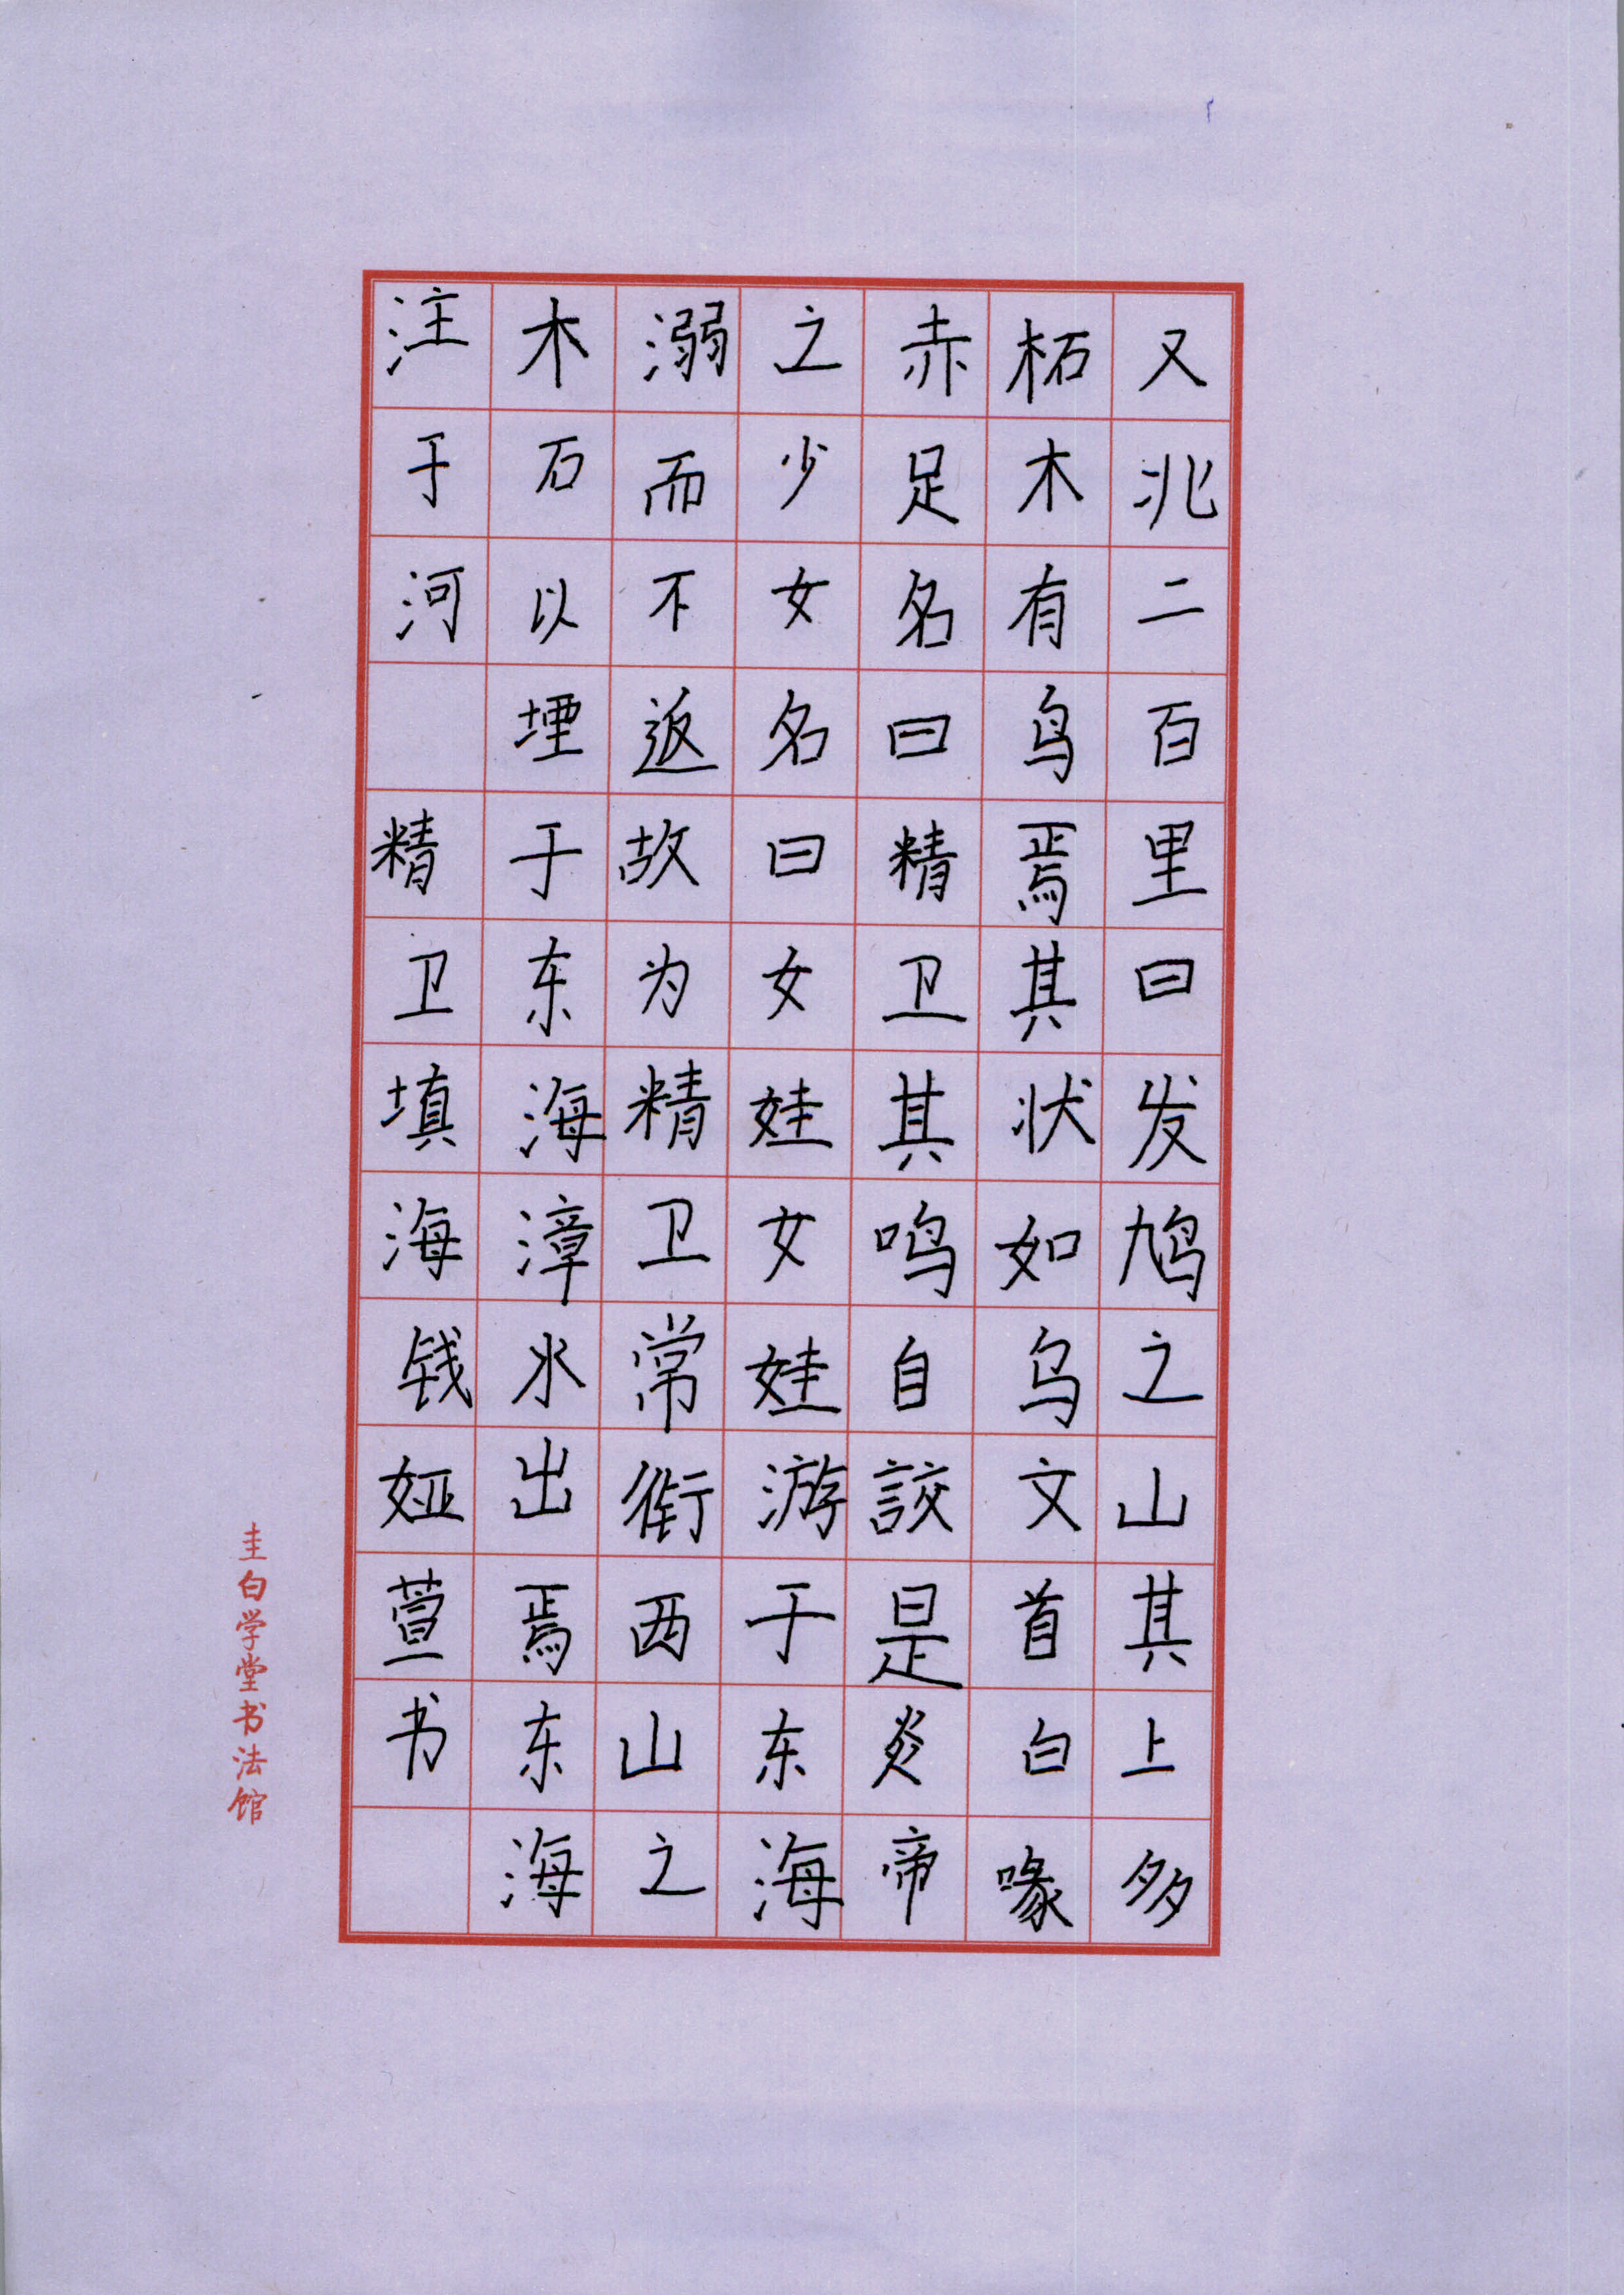 又北二百里曰发鸠之山其上多
柘木有鸟焉其状如乌文首白喙
赤足名曰精卫其鸣自詨是炎帝
之少女名曰女娃女娃游于东海
溺而不返故为精卫常衔西山之
木石以堙于东海漳水出焉东海
注于河 精卫填海钱娅萱书
圭白学堂书法馆